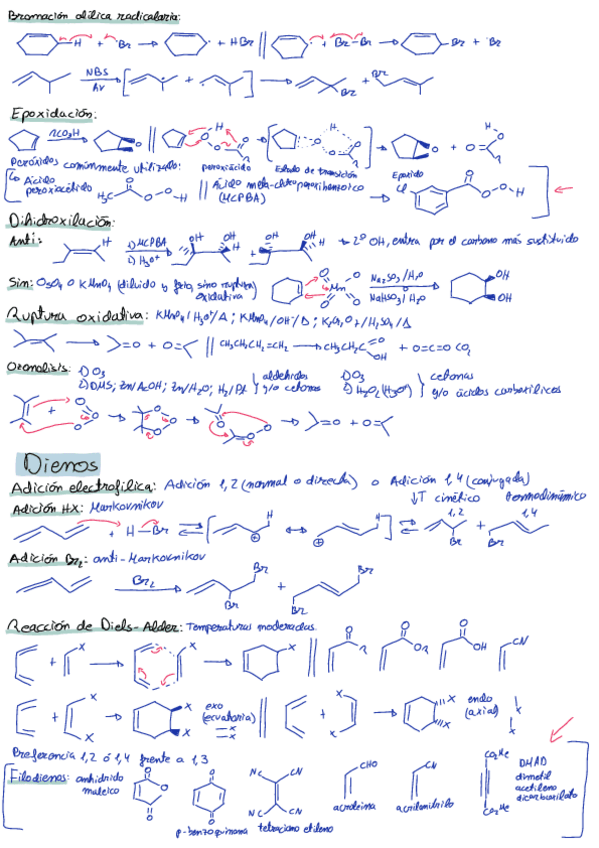 Bromación alílica radicalaria:
H + ·Br → · + HBr || · + Br-Br → Br + ·Br
NBS
hν
Br
Br
Epoxidación:
RCO₃H
Peróxidos comúnmente utilizado:
peroxiácido
Estado de transición
Epóxido
Ácido peroxiacético
H₃C
|| Ácido meta-cloroperoxibenzoico (MCPBA)
Cl
Dihidroxilación:
Anti:
1) MCPBA
2) H₃O⁺
2º OH, entra por el carbono más sustituido
Sin: OsO₄ o KMnO₄ (diluido y frío, sino ruptura oxidativa)
Na₂SO₃/H₂O
NaHSO₃/H₂O
OH
OH
Ruptura oxidativa: KMnO₄/H₃O⁺/Δ; KMnO₄/OH⁻/Δ; K₂Cr₂O₇/H₂SO₄/Δ
=O + O= || CH₃CH₂CH₂=CH₂ → CH₃CH₂C + O=C=O CO₂
Ozonolisis: 1) O₃
2) DMS; Zn/AcOH; Zn/H₂O; H₂/Pt
aldehídos y/o cetonas
1) O₃
2) H₂O₂ (H₃O⁺)
cetonas
y/o ácidos carboxílicos
Dienos
Adición electrofílica: Adición 1,2 (normal o directa) o Adición 1,4 (conjugada)
↓T cinético termodinámico
Adición HX: Markovnikov
1,2
1,4
+ H-Br
Br
Br
Adición Br₂: anti-Markovnikov
Br₂
Br
Br
Br
Br
Reacción de Diels-Alder: Temperaturas moderadas.
X
X
X
R
OR
OH
CN
exo (ecuatorial)
endo (axial)
Preferencia 1,2 ó 1,4 frente a 1,3
Filodienos: anhídrido maleico
p-benzoquinona
NC
CN
NC
CN
tetraciano etileno
CHO
acroleína
CN
acrilonitrilo
CO₂Me
CO₂Me
DMAD
dimetil
acetileno
dicarboxilato